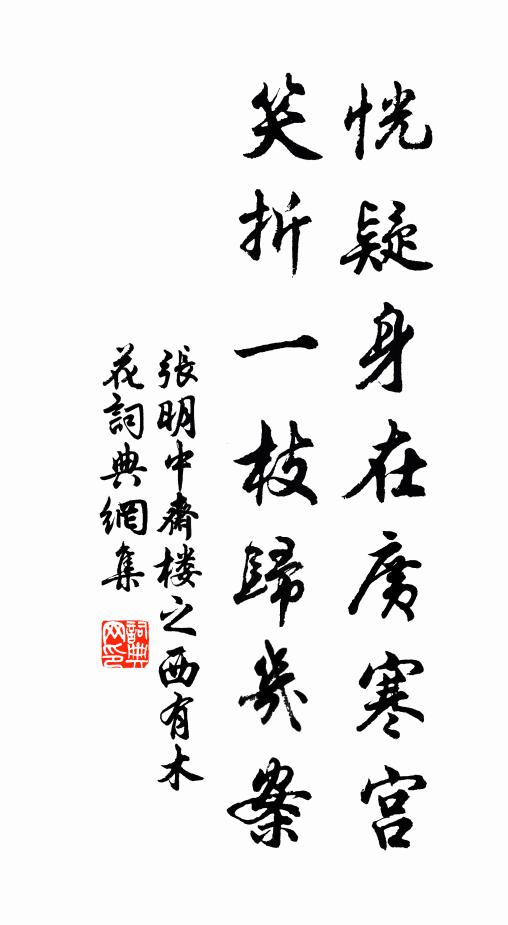 恍疑身在廣寒宮
笑折一枝歸幾案
張明中齋楼之西有木
花詞典網集
詞典
网印